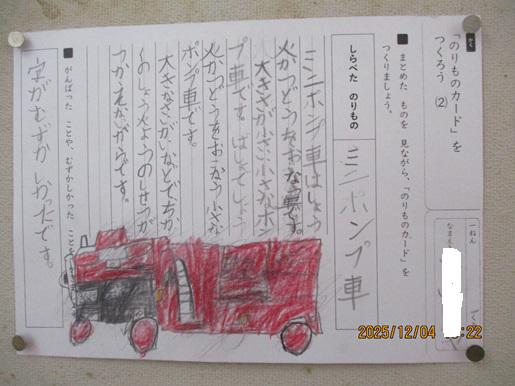 かく
「のりものカード」を
つくろう (2)
一ねん
なまえ
■ まとめた ものを 見ながら、「のりものカード」を
つくりましょう。
しらべた のりもの
ミニポンプ車
ミニポンプ車はしょう
火かつどうをおこ
大きさが小さい小さなポン
プ車です。しょう
火かつどうをおこなう小さな
ポンプ車です。
大きなさいがいなどでちか
くのしょう火ようのしせつが
つかえないからです。
■ がんばった ことや、むずかしかった ことを
字がむずかしかったです。
2025/12/04 :22